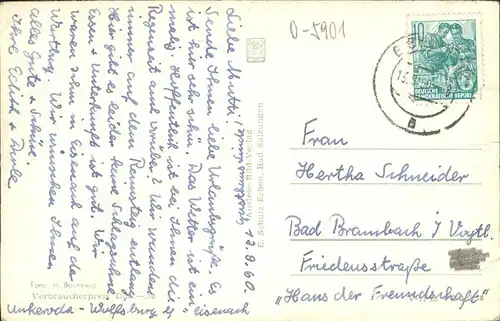 0-5901
10
DEUTSCHE
DEMOKRATISCHE REPUBLIK
B
13.9.60.
Liebe Mutti,
Sende Ihnen liebe Urlaubsgrüße. Es
ist hier sehr schön. Das Wetter ist ein
malig. Hoffentlich ist bei Ihnen die
Regenzeit mal vorüber? Wir wandern
immer auf dem Rennsteig entlang.
Hier gibt es leider keine Schlagsahne
Essen + Unterkunft ist gut. Wir
waren schon in Eisenach auf der
Wartburg. Wir wünschen Ihnen
alles Gute + Schöne.
Ihre Edith +
E. Schulz Erben, Bad Salzungen
Foto: H. Bornewitz
Verbraucherpreis
Unkeroda - Wolfsburg Eisenach
Frau
Hertha Schneider
Bad Brambach i Vogtl.
Friedensstraße
"Haus der Freundschaft"